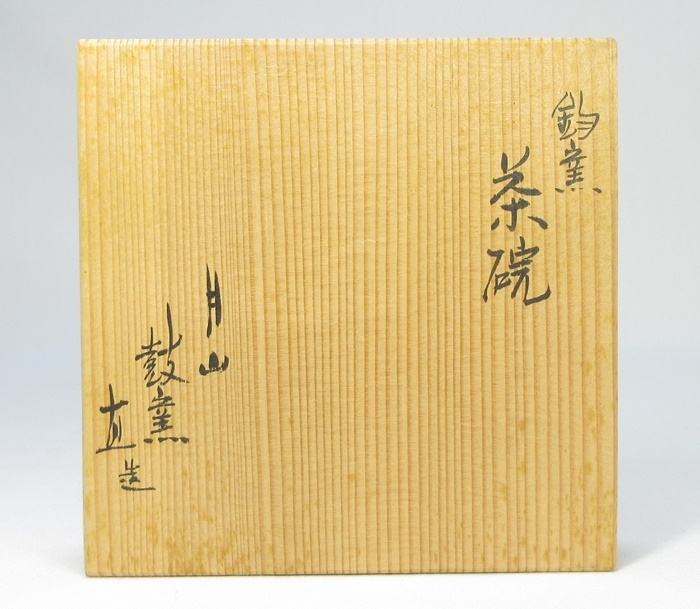 鈞窯
茶碗
月山
鼓窯
直造